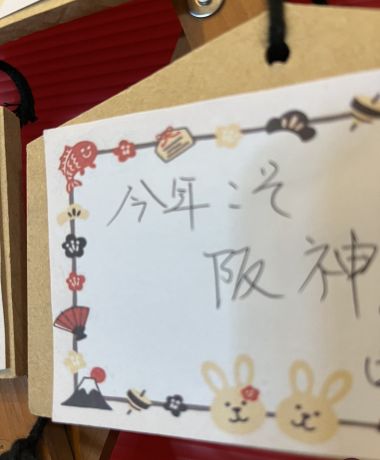 今年こそ
阪神